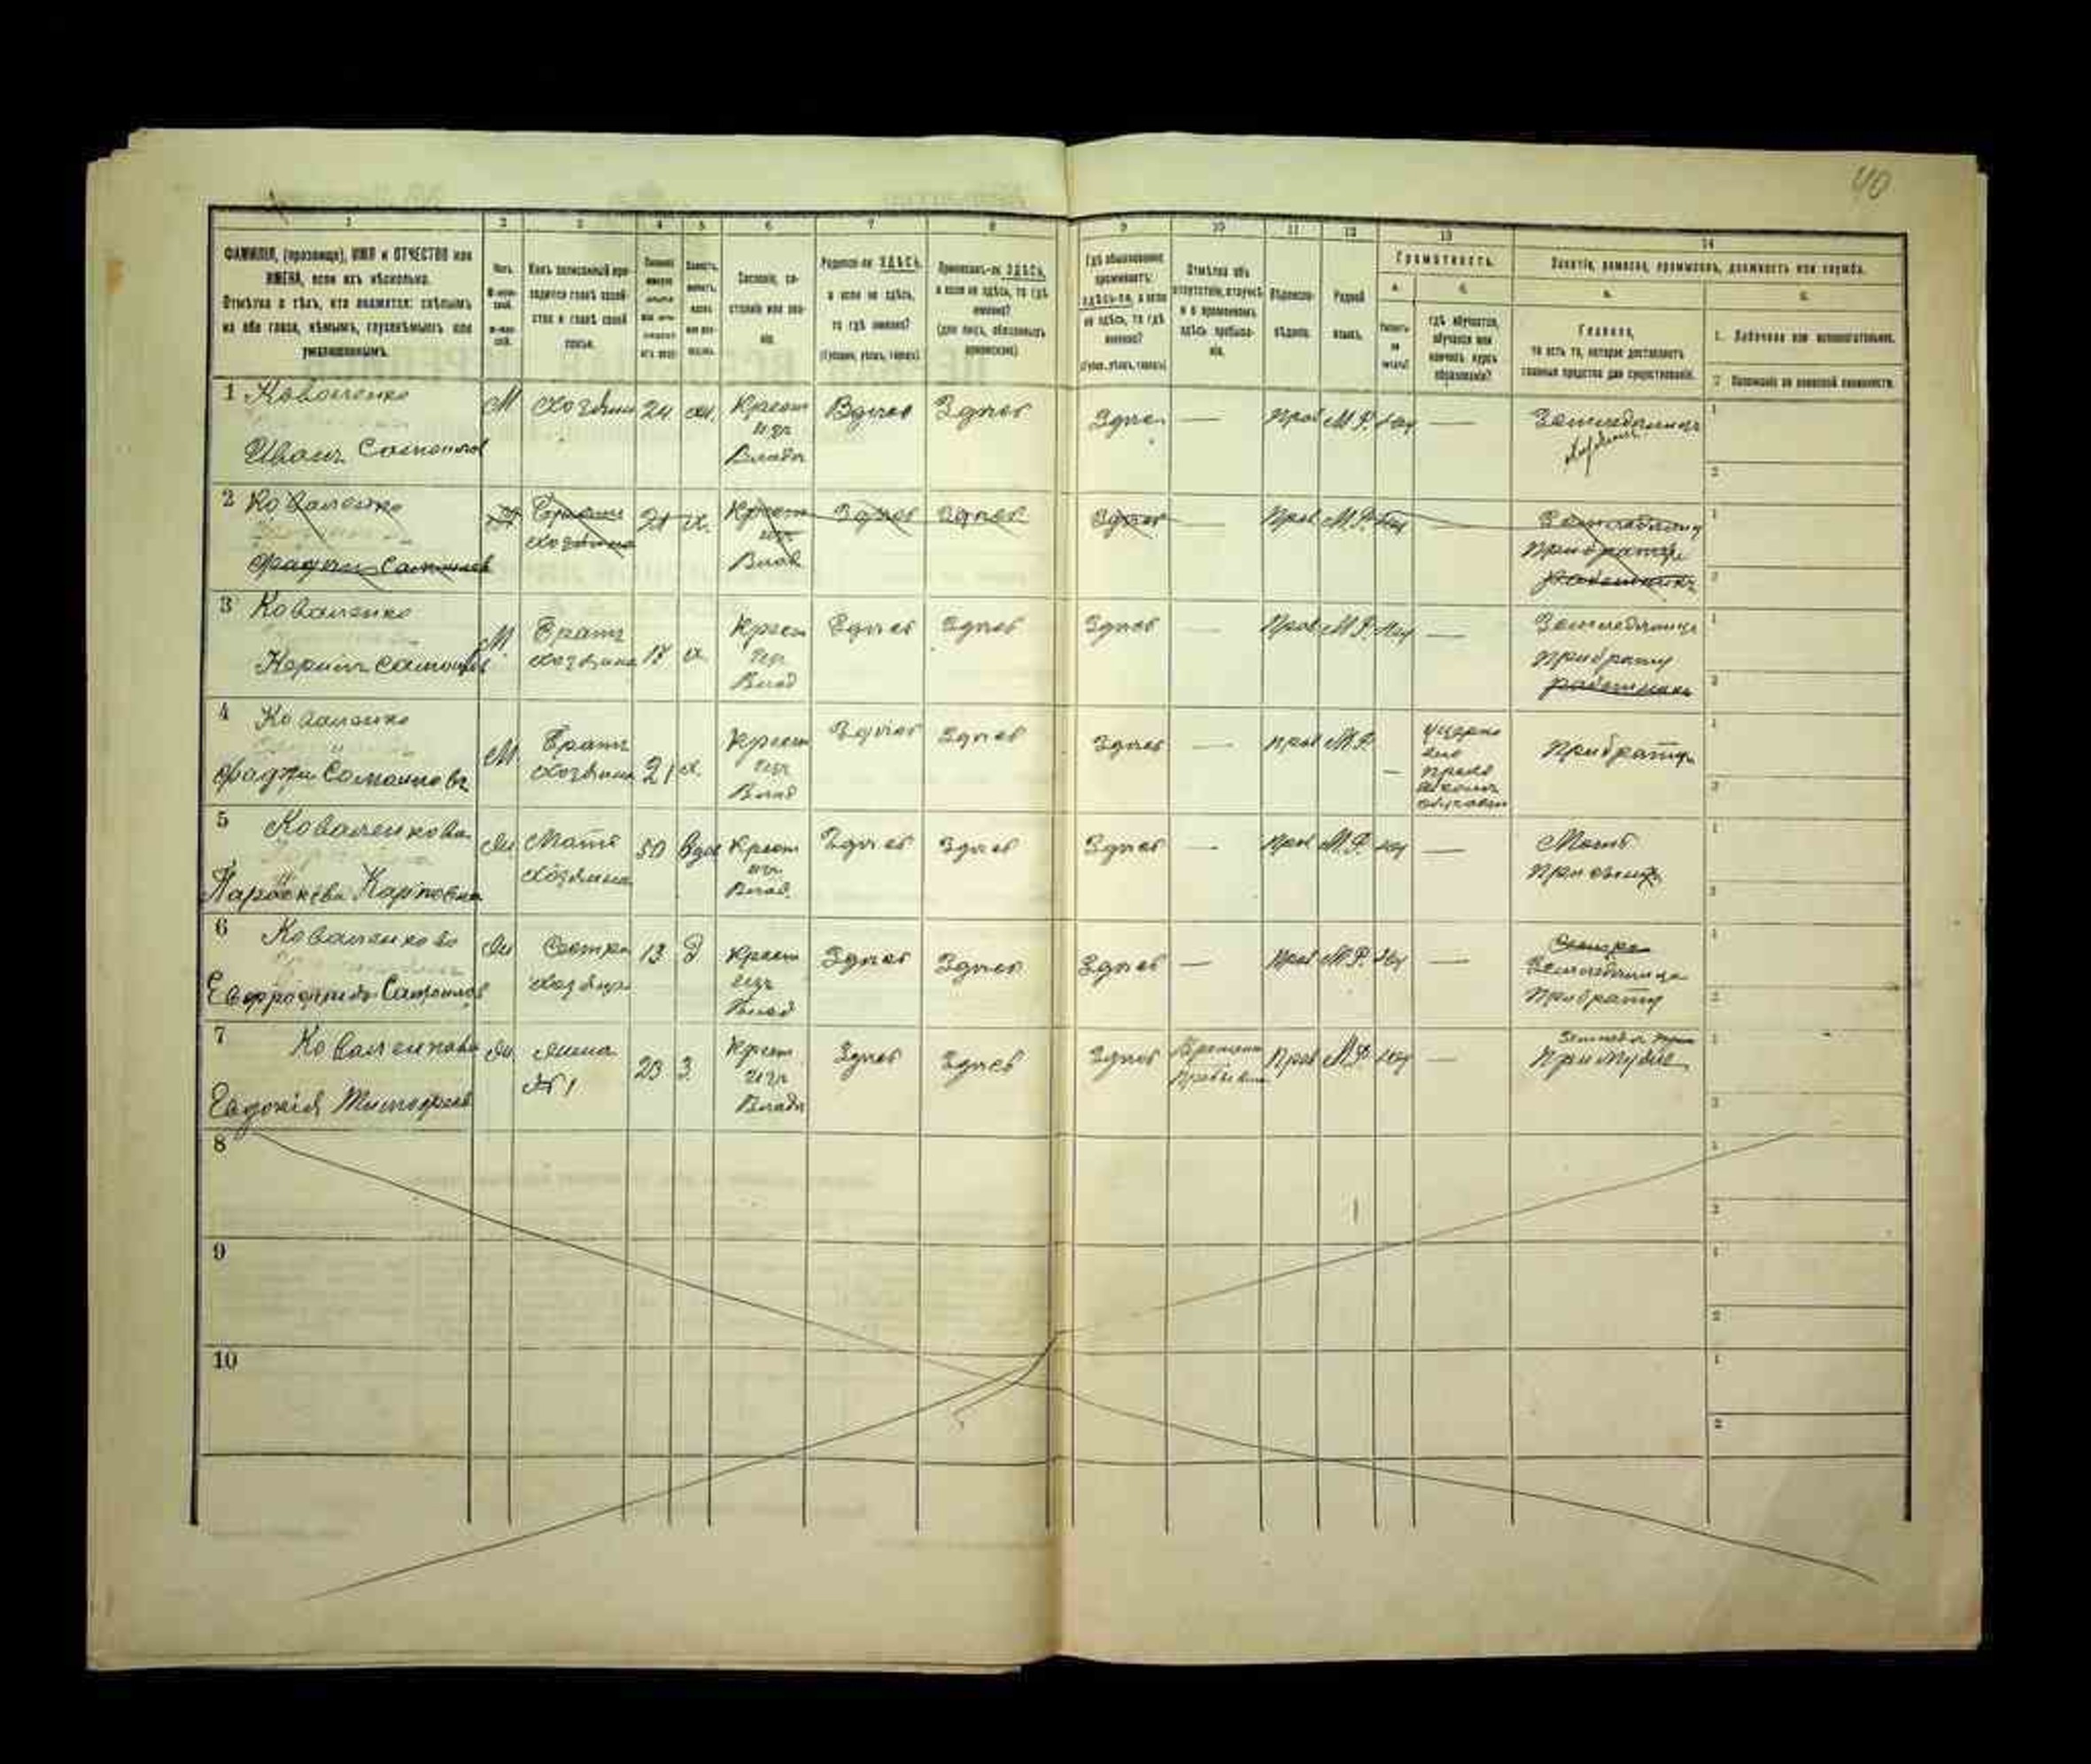 40
1 2 3 4 5 6 7 8 9 10 11 12 13 14
ФАМИЛІЯ, (прозвище), ИМЯ и ОТЧЕСТВО или
ИМЕНА, если ихъ нѣсколько.
Отмѣтка о тѣхъ, кто окажется: слѣпымъ
на оба глаза, нѣмымъ, глухонѣмымъ или
умалишеннымъ.
Полъ.
Какъ записанный при-
ходится главѣ хозяй-
ства и главѣ своей
семьи.
Сословіе, со-
стояніе или зва-
ніе.
Родился-ли ЗДѢСЬ,
а если не здѣсь,
то гдѣ именно?
(Губернія, уѣздъ, городъ).
Приписанъ-ли ЗДѢСЬ,
а если не здѣсь, то гдѣ
именно?
(для лицъ, обязанныхъ
припискою)
Гдѣ обыкновенно
проживаетъ:
здѣсь-ли, а если
не здѣсь, то гдѣ
именно?
(Губер., уѣздъ, городъ)
Отмѣтка объ
отсутствіи, отлучкѣ
и о временномъ
здѣсь пребыва-
ніи.
Вѣроиспо-
вѣданіе.
Родной
языкъ.
Грамотность.
а. б.
Умѣетъ-
ли
читать?
гдѣ обучается,
обучался или
кончилъ курсъ
образованія?
Занятіе, ремесло, промыселъ, должность или служба.
а.
Главное,
то есть то, которое доставляетъ
главныя средства для существованія.
б.
1. Побочное или вспомогательное.
2. Положеніе по воинской повинности.
1 Коваленко
Иванъ Самойлов
М Хозяин 24 ж. Крест
изъ
Влад Здѣсь Здѣсь Здѣсь — Прав М.Р. нет — Земледѣлецъ
Хозяин
2 Коваленко
Фадѣй Самойлов
М Братъ
хозяина 21 х. Крест
изъ
Влад Здѣсь Здѣсь Здѣсь — Прав М.Р. нет Земледѣлец
при братѣ
работникъ
3 Коваленко
Самойлов
М. Братъ
хозяина 17 х. Крест
изъ
Влад Здѣсь Здѣсь Здѣсь — Прав М.Р. нет — Земледѣлец
при брату
работникъ
4 Коваленко
Фадѣй Самойловъ
М. Братъ
хозяина 21 х. Крест
изъ
Влад Здѣсь Здѣсь Здѣсь — прав М.Р. — При братѣ
5 Коваленкова
Параскева Карповна
Ж Мать
хозяина 50 Вдов Крест
изъ
Влад. Здѣсь Здѣсь Здѣсь — Прав М.Р. нет — Мать
При сынѣ
6 Коваленкова
Евфросинія Самойлов
Ж Сестра
хозяина 13 д Крест
изъ
Влад Здѣсь Здѣсь Здѣсь — Прав М.Р. нет — Сестра
Земледѣлица
При брату
7 Коваленкова
Евдокія Тимофеев
Ж жена
№ 1 23 З. Крест
изъ
Влад Здѣсь Здѣсь Здѣсь Времен
пребыван Прав М.Р. нет — При мужѣ
8
9
10